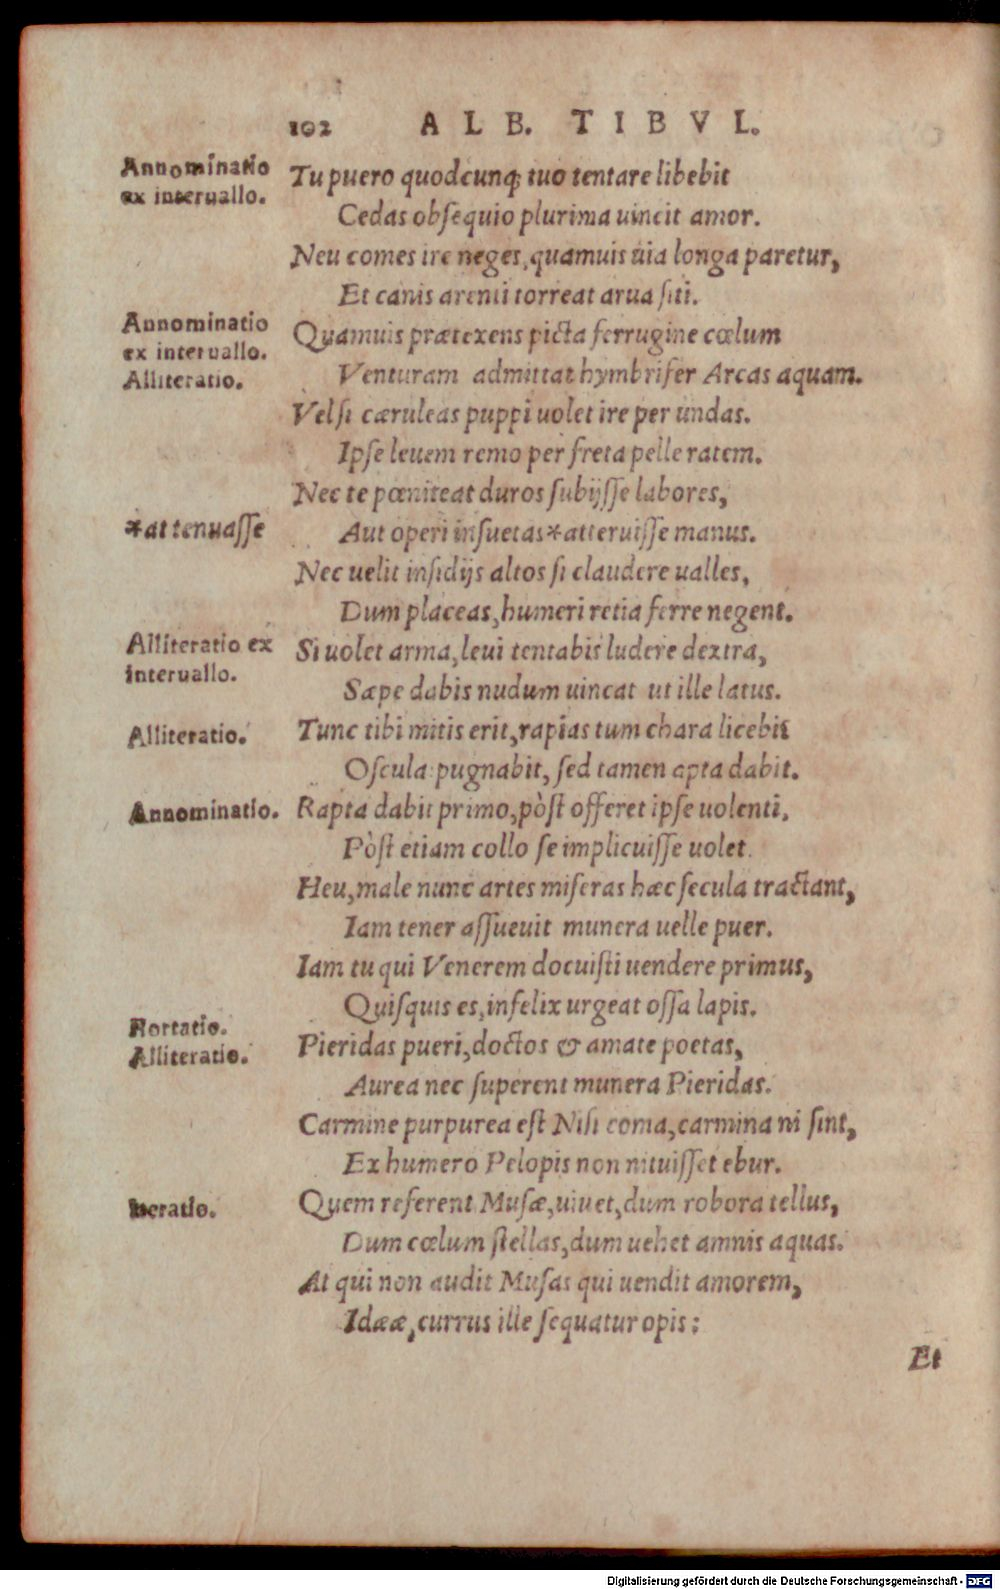 102 ALB. TIBVL.
Annominatio
ex interuallo.
Tu puero quodcunq; tuo tentare libebit
Cedas obsequio plurima uincit amor.
Neu comes ire neges, quamuis uia longa paretur,
Et canis arenti torreat arua siti.
Annominatio
ex interuallo.
Alliteratio.
Quamuis prætexens picta ferrugine cœlum
Venturam admittat hymbrifer Arcas aquam.
Vel si cæruleas puppi uolet ire per undas.
Ipse leuem remo per freta pelle ratem.
Nec te pœniteat duros subijsse labores,
*attenuasse
Aut operi insuetas*atteruisse manus.
Nec uelit insidijs altos si claudere ualles,
Dum placeas, humeri retia ferre negent.
Alliteratio ex
interuallo.
Si uolet arma, leui tentabis ludere dextra,
Sæpe dabis nudum uincat ut ille latus.
Alliteratio.
Tunc tibi mitis erit, rapias tum chara licebit
Oscula: pugnabit, sed tamen apta dabit.
Annominatio.
Rapta dabit primo, pòst offeret ipse uolenti,
Pòst etiam collo se implicuisse uolet.
Heu, male nunc artes miseras hæc secula tractant,
Iam tener assueuit munera uelle puer.
Iam tu qui Venerem docuisti uendere primus,
Quisquis es, infelix urgeat ossa lapis.
Hortatio.
Alliteratio.
Pieridas pueri, doctos & amate poetas,
Aurea nec superent munera Pieridas.
Carmine purpurea est Nisi coma, carmina ni sint,
Ex humero Pelopis non nituisset ebur.
Iteratio.
Quem referent Musæ, uiuet, dum robora tellus,
Dum cœlum stellas, dum uehet amnis aquas.
At qui non audit Musas qui uendit amorem,
Idææ, currus ille sequatur opis:
Et
Digitalisierung gefördert durch die Deutsche Forschungsgemeinschaft - DFG